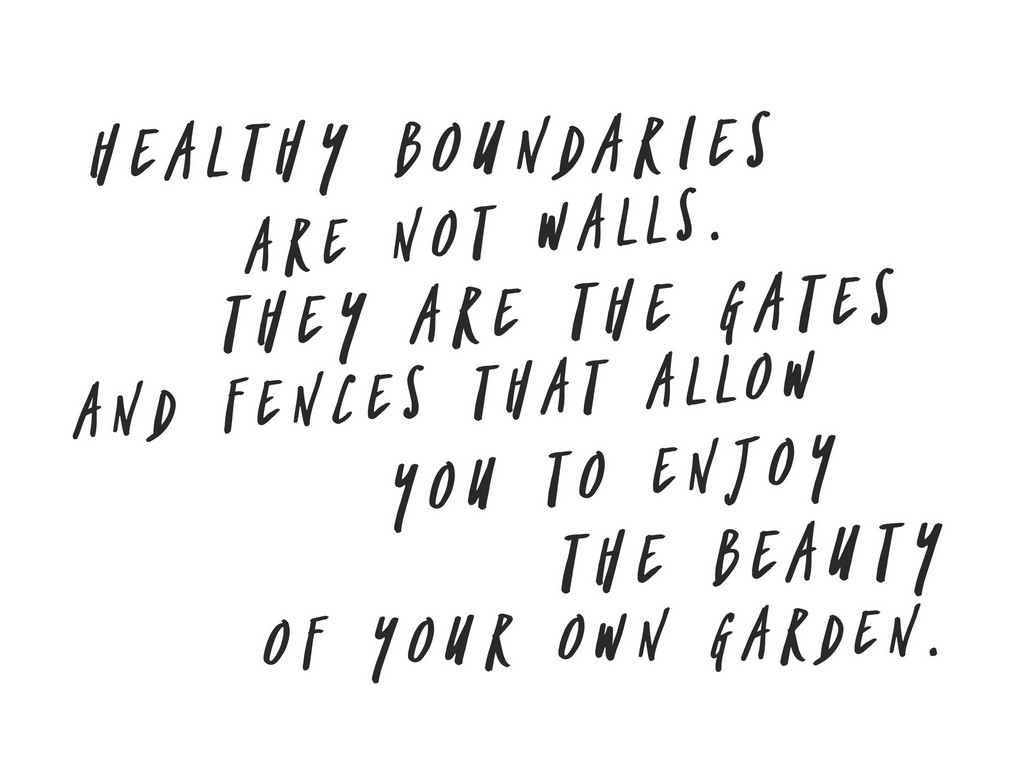 HEALTHY BOUNDARIES
ARE NOT WALLS.
THEY ARE THE GATES
AND FENCES THAT ALLOW
YOU TO ENJOY
THE BEAUTY
OF YOUR OWN GARDEN.